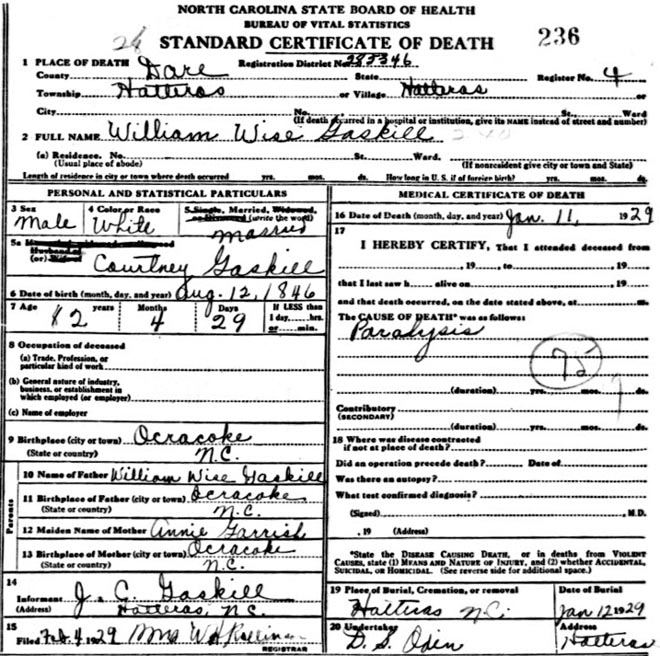 NORTH CAROLINA STATE BOARD OF HEALTH
BUREAU OF VITAL STATISTICS
STANDARD CERTIFICATE OF DEATH 236
1 PLACE OF DEATH Registration District No. 285346
County Dare State Register No. 4
Township Hatteras or Village Hatteras
City No. St., Ward
(If death occurred in a hospital or institution, give its NAME instead of street and number)
2 FULL NAME William Wise Gaskill
(a) Residence. No. St. Ward.
(Usual place of abode) (If nonresident give city or town and State)
Length of residence in city or town where death occurred yrs. mos. ds. How long in U. S. if of foreign birth? yrs. mos. ds.
PERSONAL AND STATISTICAL PARTICULARS
3 Sex 4 Color or Race 5 Single, Married, Widowed, or Divorced (write the word)
Male White Married
5a If married, widowed, or divorced
Husband of
(or) Wife of Courtney Gaskill
6 Date of birth (month, day, and year) Aug. 12, 1846
7 Age years Months Days IF LESS than
82 4 29 1 day, hrs.
or min.
8 Occupation of deceased
(a) Trade, Profession, or particular kind of work
(b) General nature of industry, business, or establishment in which employed (or employer)
(c) Name of employer
9 Birthplace (city or town) Ocracoke
(State or country) N.C.
Parents
10 Name of Father William Wise Gaskill
11 Birthplace of Father (city or town) Ocracoke
(State or country) N.C.
12 Maiden Name of Mother Annie Garrish
13 Birthplace of Mother (city or town) Ocracoke
(State or country) N.C.
14
Informant J. G. Gaskill
(Address) Hatteras, N.C.
15
Filed Feb 4, 1929 Mrs
REGISTRAR
MEDICAL CERTIFICATE OF DEATH
16 Date of Death (month, day, and year) Jan. 11, 1929
17
I HEREBY CERTIFY, That I attended deceased from
, 19 , to , 19
that I last saw h alive on , 19
and that death occurred, on the date stated above, at m.
The CAUSE OF DEATH* was as follows:
Paralysis
75
(duration) yrs. mos. ds.
Contributory
(SECONDARY)
(duration) yrs. mos. ds.
18 Where was disease contracted
if not at place of death?
Did an operation precede death? Date of
Was there an autopsy?
What test confirmed diagnosis?
(Signed) , M.D.
, 19 (Address)
*State the DISEASE CAUSING DEATH, or in deaths from VIOLENT CAUSES, state (1) MEANS AND NATURE OF INJURY, and (2) whether ACCIDENTAL, SUICIDAL, or HOMICIDAL. (See reverse side for additional space.)
19 Place of Burial, Cremation, or removal Date of Burial
Hatteras N.C. Jan 12 1929
20 Undertaker Address
D. S. Oden Hatteras